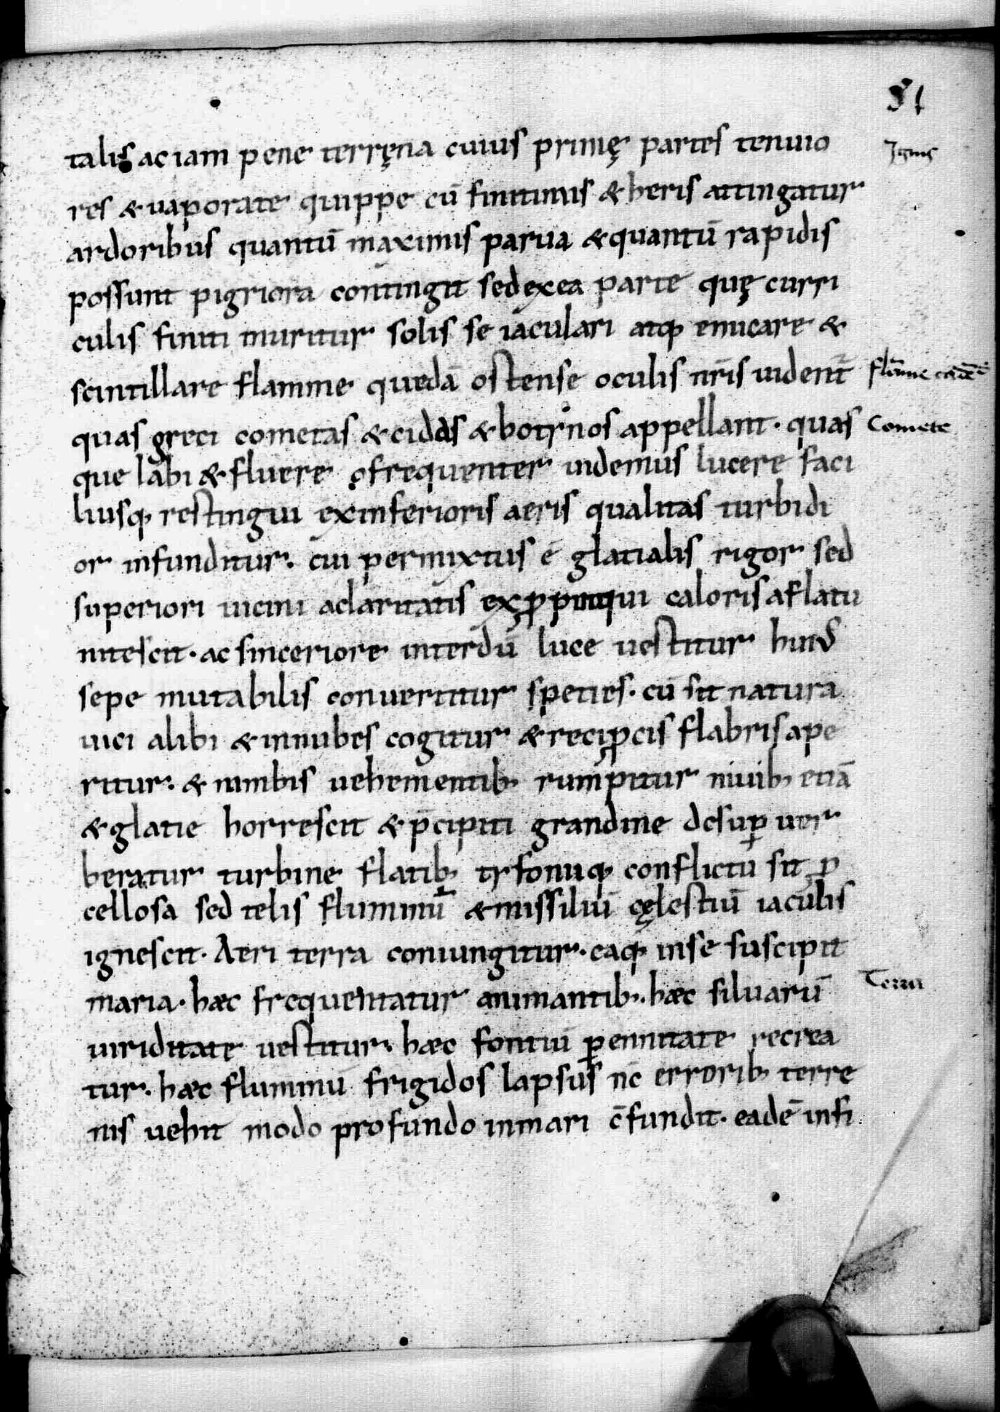 51
talis ac iam pene terręna cuius primę partes tenuio
Ignis
res & uaporate quippe cū finitimis & heris attingatur
ardoribus quantū maximis parua & quantū rapidis
possunt pigriora contingit sed exea parte quę curri
culis finiti muritur solis se iaculari atq; emicare &
scintillare flamme quedā ostense oculis nr̄is uident̄
quas greci cometas & ciddas & botrinos appellant · quas
Comete
que labi & fluere frequenter uidemus lucere faci
liusq; restingui exinferioris aeris qualitas turbidi
or infunditur · cui permixtus ē glatialis rigor sed
superiori uicini aclaritatis caloris aflatu
nitescit · ac sinceriore interdū luce uestitur huiꝰ
sepe mutabilis conuertitur speties · cū sit natura
uici alibi & innubes cogitur & recip̄cis flabris ape
ritur · & nimbis uehementib; rumpitur niuib; etiā
& glatie horrescit & p̄cipiti grandine desuꝑ uer
beratur turbine flatib; tyfonuq; conflictū fit ꝓ
cellosa sed telis fluminū & missiliū cęlestiū iaculis
ignescit · Aeri terra coniungitur · eaq; inse suscipit
maria · hæc frequentatur animantib; · hæc siluarū
Terra
uiriditate uestitur · hæc fontiū ꝑennitate recrea
tur · hæc fluminū frigidos lapsus nc̄ errorib; terre
nis uehit modo profundo inmari c̄fundit · eadē infi